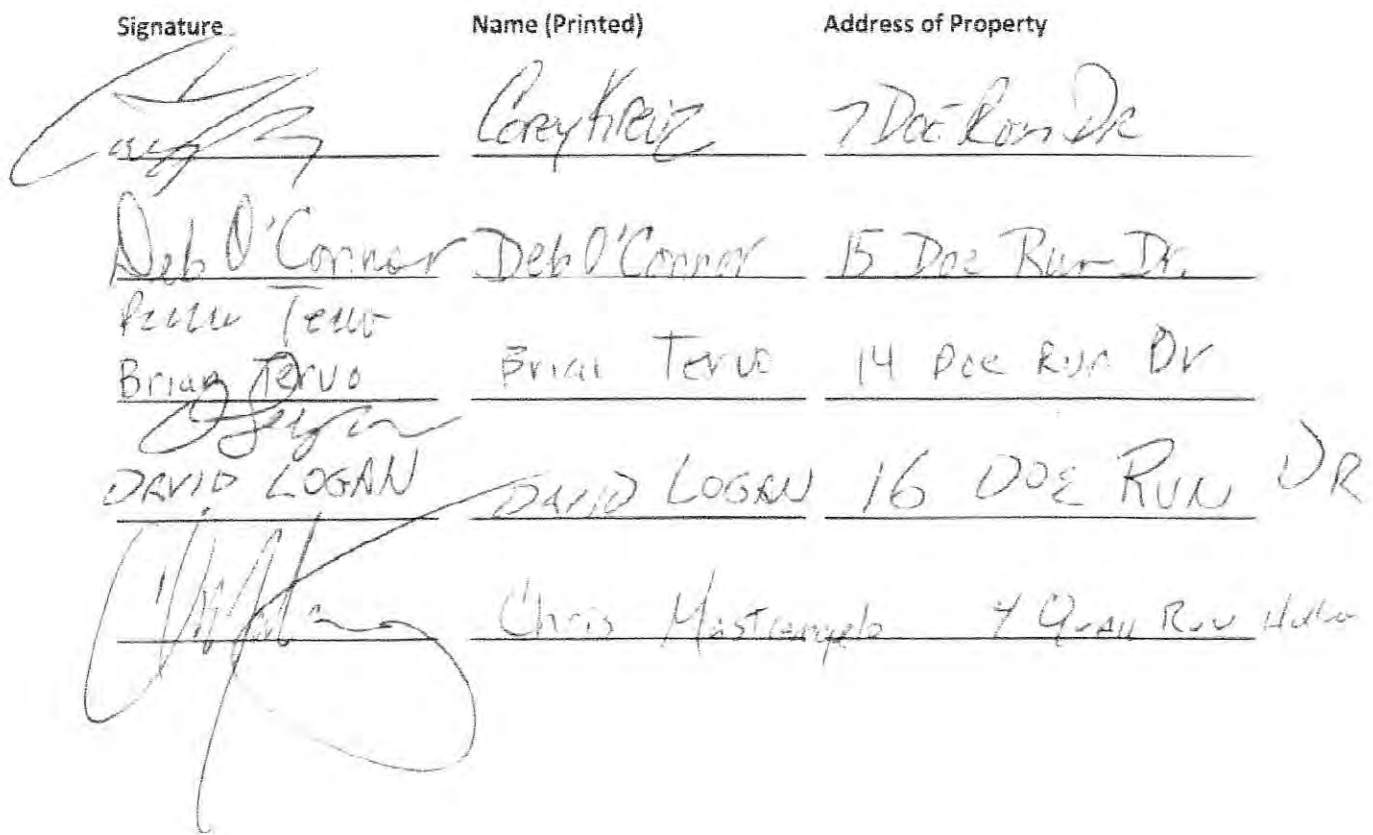 Signature Name (Printed) Address of Property
Corey 7 Doe Run Dr
Deb O'Connor Deb O'Connor 15 Doe Run Dr.
Tervo
Brian Tervo Brian Tervo 14 Doe Run Dr
DAVID LOGAN DAVID LOGAN 16 DOE RUN DR
Chris Mastrangelo 4 Quail Run